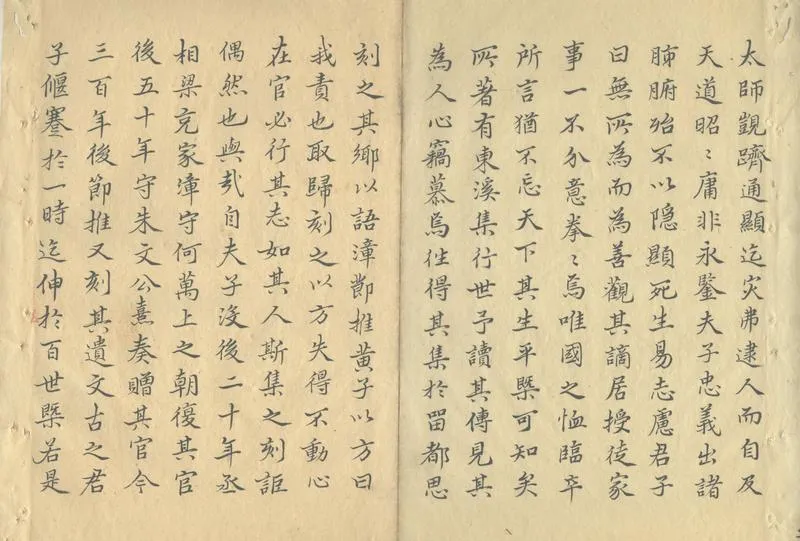 太師覬躋通顯迄灾弗逮人而自及
天道昭〻庸非永鑒夫子忠義出諸
肺腑殆不以隐顯死生易志慮君子
曰無所為而為善觀其謫居授徒家
事一不介意拳〻焉唯國之恤臨卒
所言猶不忘天下其生平槩可知矣
所著有東溪集行世予讀其傳見其
為人心竊慕焉往得其集於留都思
刻之其鄉以語漳節推黄子以方曰
我責也取歸刻之以方失得不動心
在官必行其志如其人斯集之刻詎
偶然也與㢤自夫子沒後二十年丞
相梁克家漳守何萬上之朝復其官
後五十年守朱文公熹奏贈其官今
三百年後節推又刻其遺文古之君
子偃蹇於一時迄伸於百世槩若是